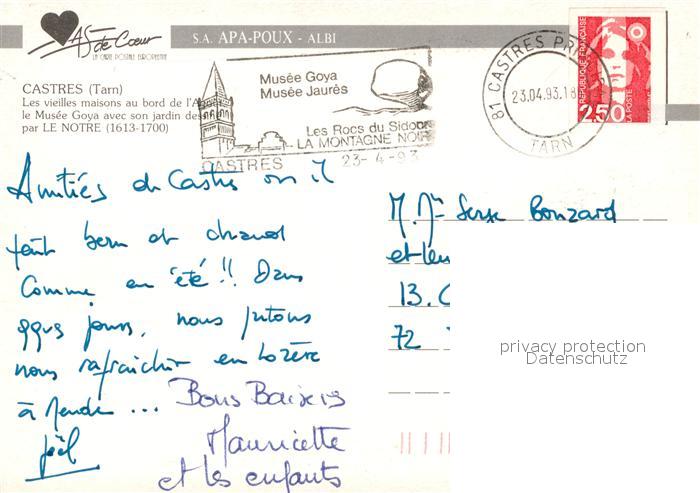 As de Cœur
LA CARTE POSTALE EUROPÉENNE
S.A. APA-POUX - ALBI
CASTRES (Tarn)
Les vieilles maisons au bord de l'A
le Musée Goya avec son jardin des
par LE NOTRE (1613-1700)
Musée Goya
Musée Jaurès
Les Rocs du Sidobre
LA MONTAGNE NOIRE
CASTRES 23-4-93
81 CASTRES PR
23.04.93.18
TARN
RÉPUBLIQUE FRANÇAISE
LA POSTE
2,50
Amitiés de Castres où il
fait beau et chaud
comme en été !! Dans
qqes jours, nous partons
nous rafraîchir en Lozère
à Mende ...
Joël
Bons Baisers
Mauricette
et les enfants
M. Mme Serge Bonzard
et leu
13. C
72
privacy protection
Datenschutz